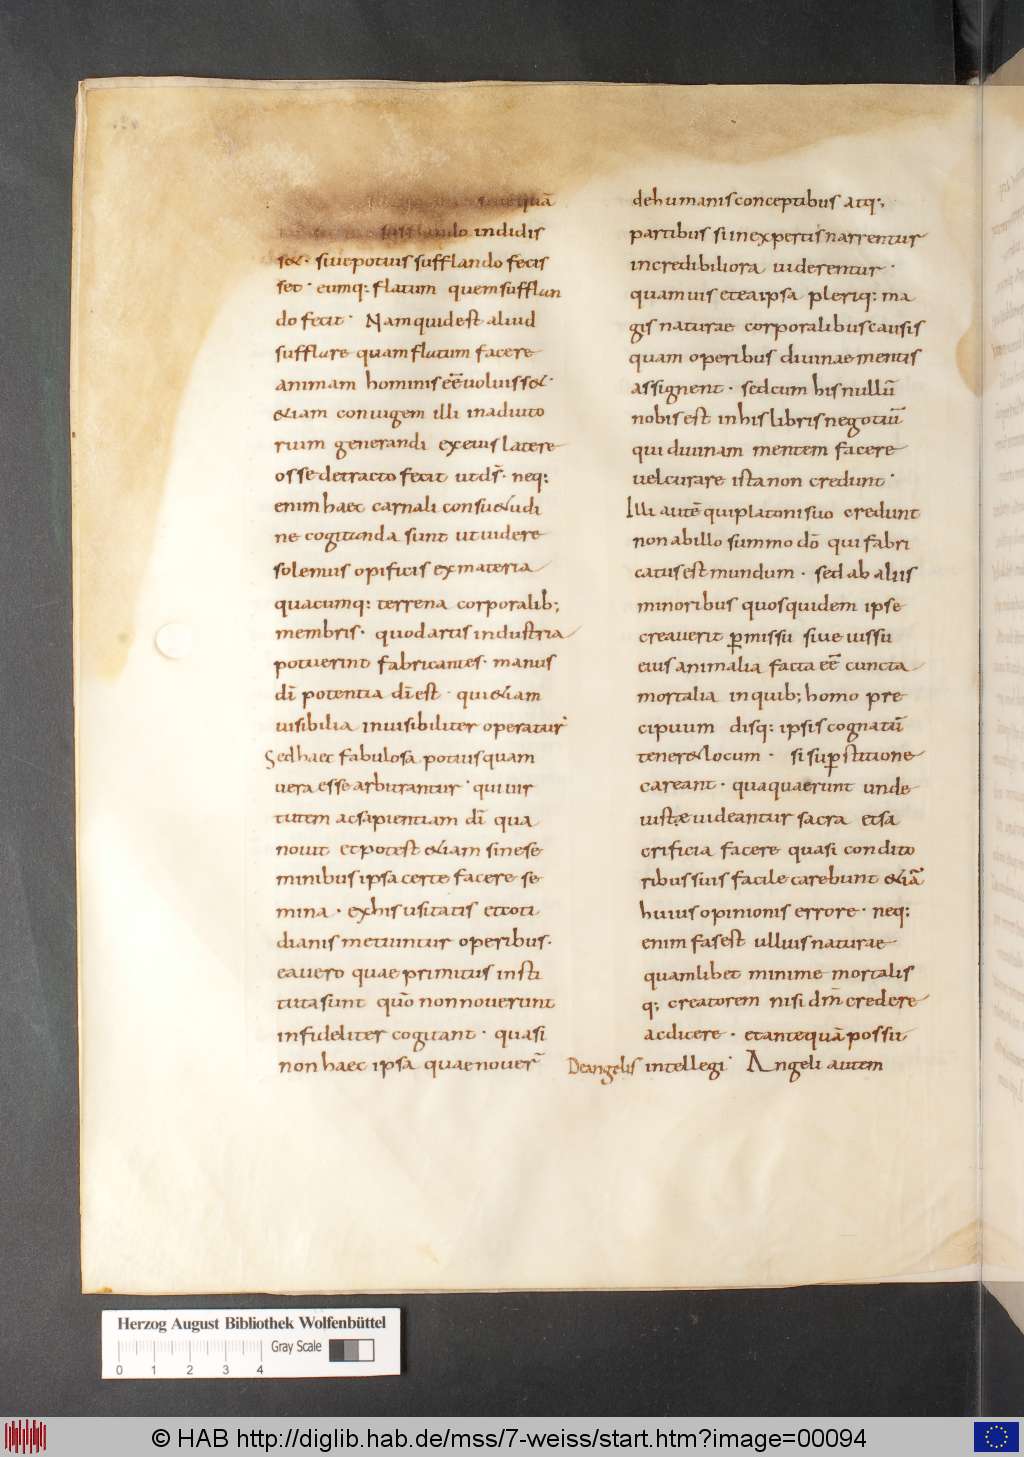 siue quā
sufflando indidis
s&· siue potius sufflando fecis
set· eumq: flatum quem sufflan
do fecit· Nam quid est aliud
sufflare quam flatum facere
animam hominis eē uoluiss&·
&iam coniugem illi in adiuto
rium generandi ex eius latere
osse detracto fecit ut ds̄· neq:
enim haec carnali consu&udi
ne cogitanda sunt ut uidere
solemus opificis ex materia
quacumq: terrena corporalib;
membris· quod artis industria
potuerint fabricantes· manus
dī potentia dī est· qui &iam
uisibilia inuisibiliter operatur·
Sed haec fabulosa potius quam
uera esse arbitrantur· qui uir
tutem ac sapientiam dī qua
nouit et potest &iam sine se
minibus ipsa certe facere se
mina· ex his usitatis et coti
dianis metiuntur operibus·
ea uero quae primitus insti
tuta sunt quō non nouerunt
infideliter cogitant· quasi
non haec ipsa quae nouer̄
de humanis conceptibus atq;
partibus si inexpertis narrentur
incredibiliora uiderentur·
quamuis et ea ipsa pleriq: ma
gis naturae corporalibus causis
quam operibus diuinae mentis
assignent· sed cum his nullū
nobis est in his libris negotiū
qui diuinam mentem facere
uel curare ista non credunt·
Illi autē qui platoni suo credunt
non ab illo summo dō qui fabri
catus est mundum· sed ab aliis
minoribus quos quidem ipse
creauerit p̲missu siue iussu
eius animalia facta eē cuncta
mortalia in quib; homo pre
cipuum disq: ipsis cognatū
tener& locum· si sup̲stitione
careant· qua quaerunt unde
iuste uideantur sacra et sa
crificia facere quasi condito
ribus suis facile carebunt &iā
huius opinionis errore· neq:
enim fas est ullius naturae
quamlibet minime mortalis
q; creatorem nisi dm̄ credere
ac dicere· et antequā possit
De angelis intellegi· Angeli autem
Herzog August Bibliothek Wolfenbüttel
Gray Scale
0 1 2 3 4
© HAB http://diglib.hab.de/mss/7-weiss/start.htm?image=00094